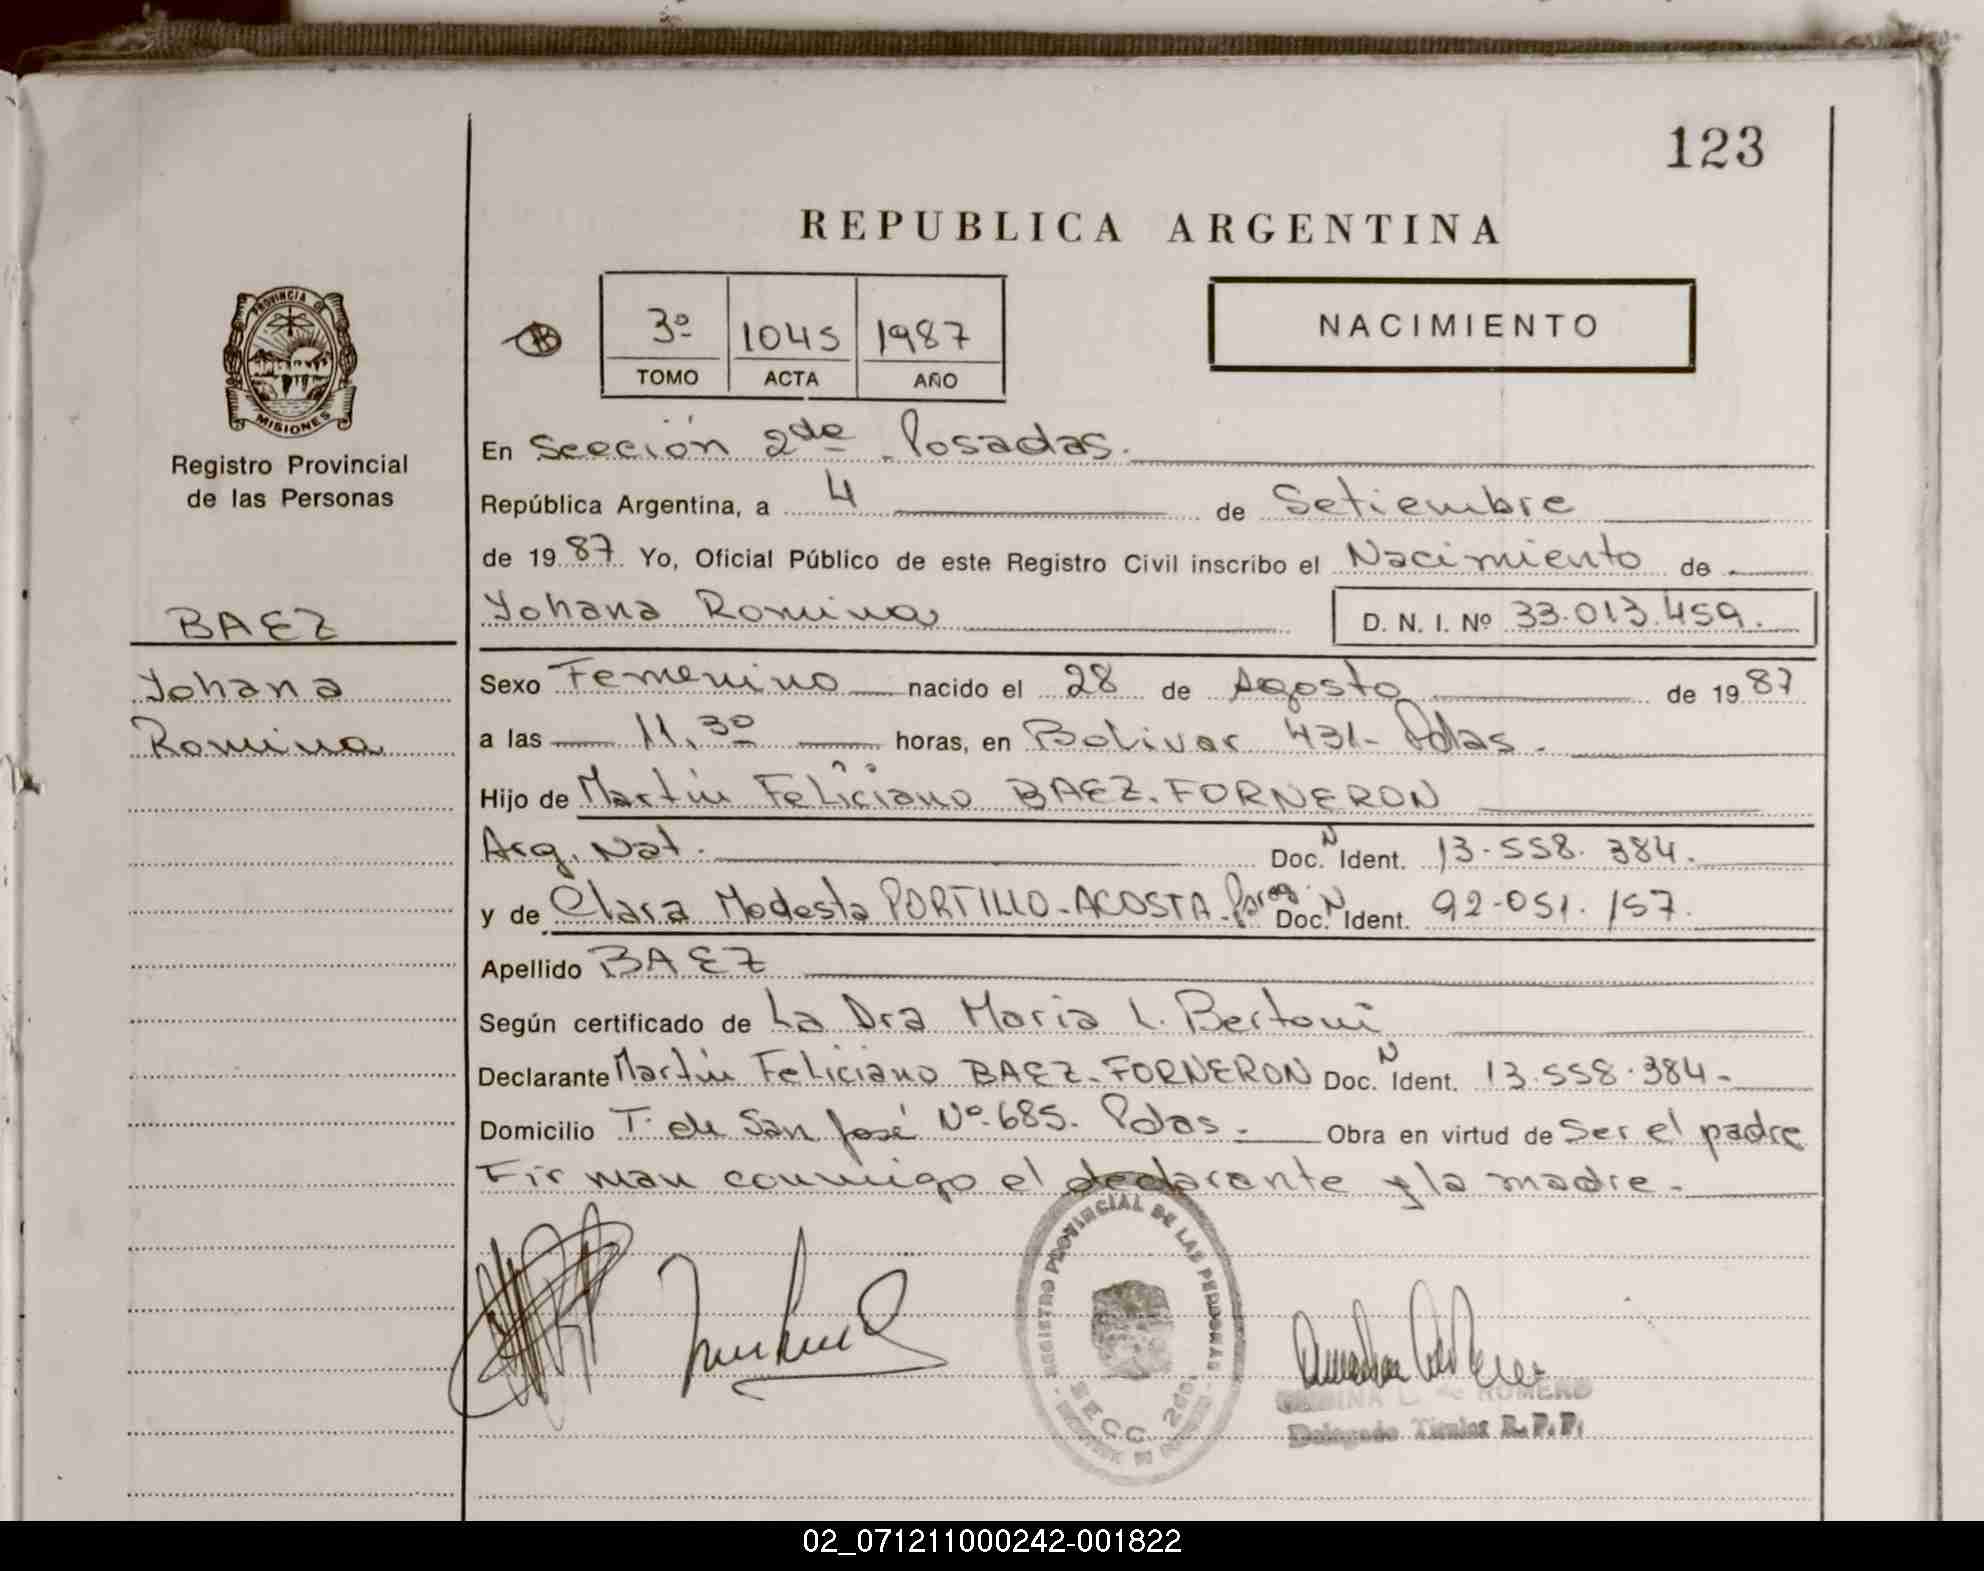 123
REPUBLICA ARGENTINA
PROVINCIA DE
MISIONES
Registro Provincial
de las Personas
3º 1045 1987
TOMO ACTA AÑO
NACIMIENTO
En Sección 2da Posadas.
República Argentina, a 4 de Setiembre
de 1987 Yo, Oficial Público de este Registro Civil inscribo el Nacimiento de
BAEZ
Yohana Romina D. N. I. Nº 33.013.459.
Yohana
Romina
Sexo Femenino nacido el 28 de Agosto de 1987
a las 11,30 horas, en Bolivar 431- Pdas.
Hijo de Martín Feliciano BAEZ-FORNERON
Arg. Nat. Doc. N Ident. 13.558.384.
y de Clara Modesta PORTILLO-ACOSTA-Parag. Doc. N Ident. 92-051.157.
Apellido BAEZ
Según certificado de La Dra Maria L. Bertoni
Declarante Martín Feliciano BAEZ-FORNERON Doc. N Ident. 13.558.384-
Domicilio T. de San José Nº 685. Pdas. Obra en virtud de Ser el padre
Firman conmigo el declarante y la madre.
REGISTRO PROVINCIAL DE LAS PERSONAS
SECC. 2da.
L. de ROMERO
Delegado Titular R.P.P.
02_071211000242-001822